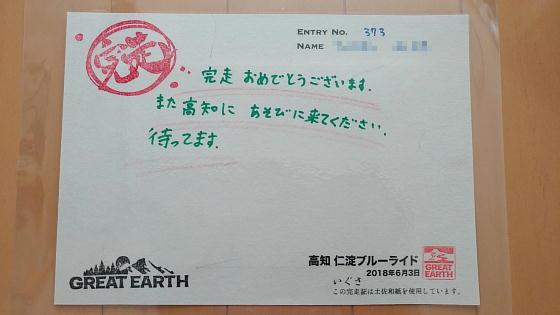 ENTRY NO. 373
NAME
完走
完走 おめでとうございます.
また 高知に あそびに来てください.
待ってます.
GREAT EARTH
高知 仁淀ブルーライド
2018年6月3日
GREAT EARTH
いぐさ
この完走証は土佐和紙を使用しています。